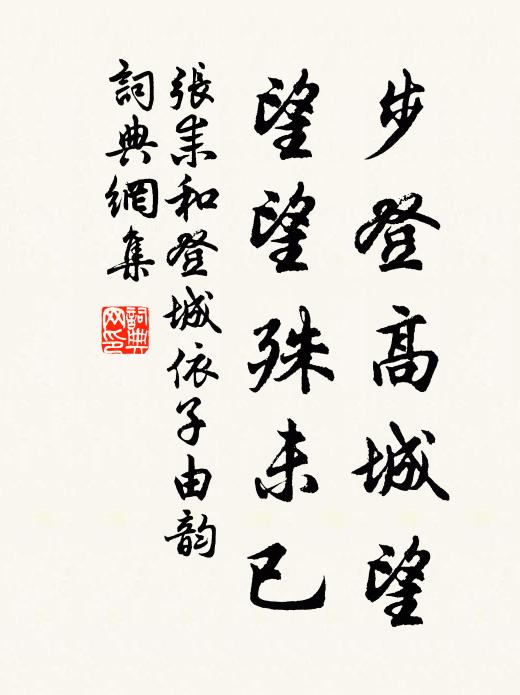 步登高城望
望望殊未已
張耒和登城依子由韵
詞典網集
詞典网印